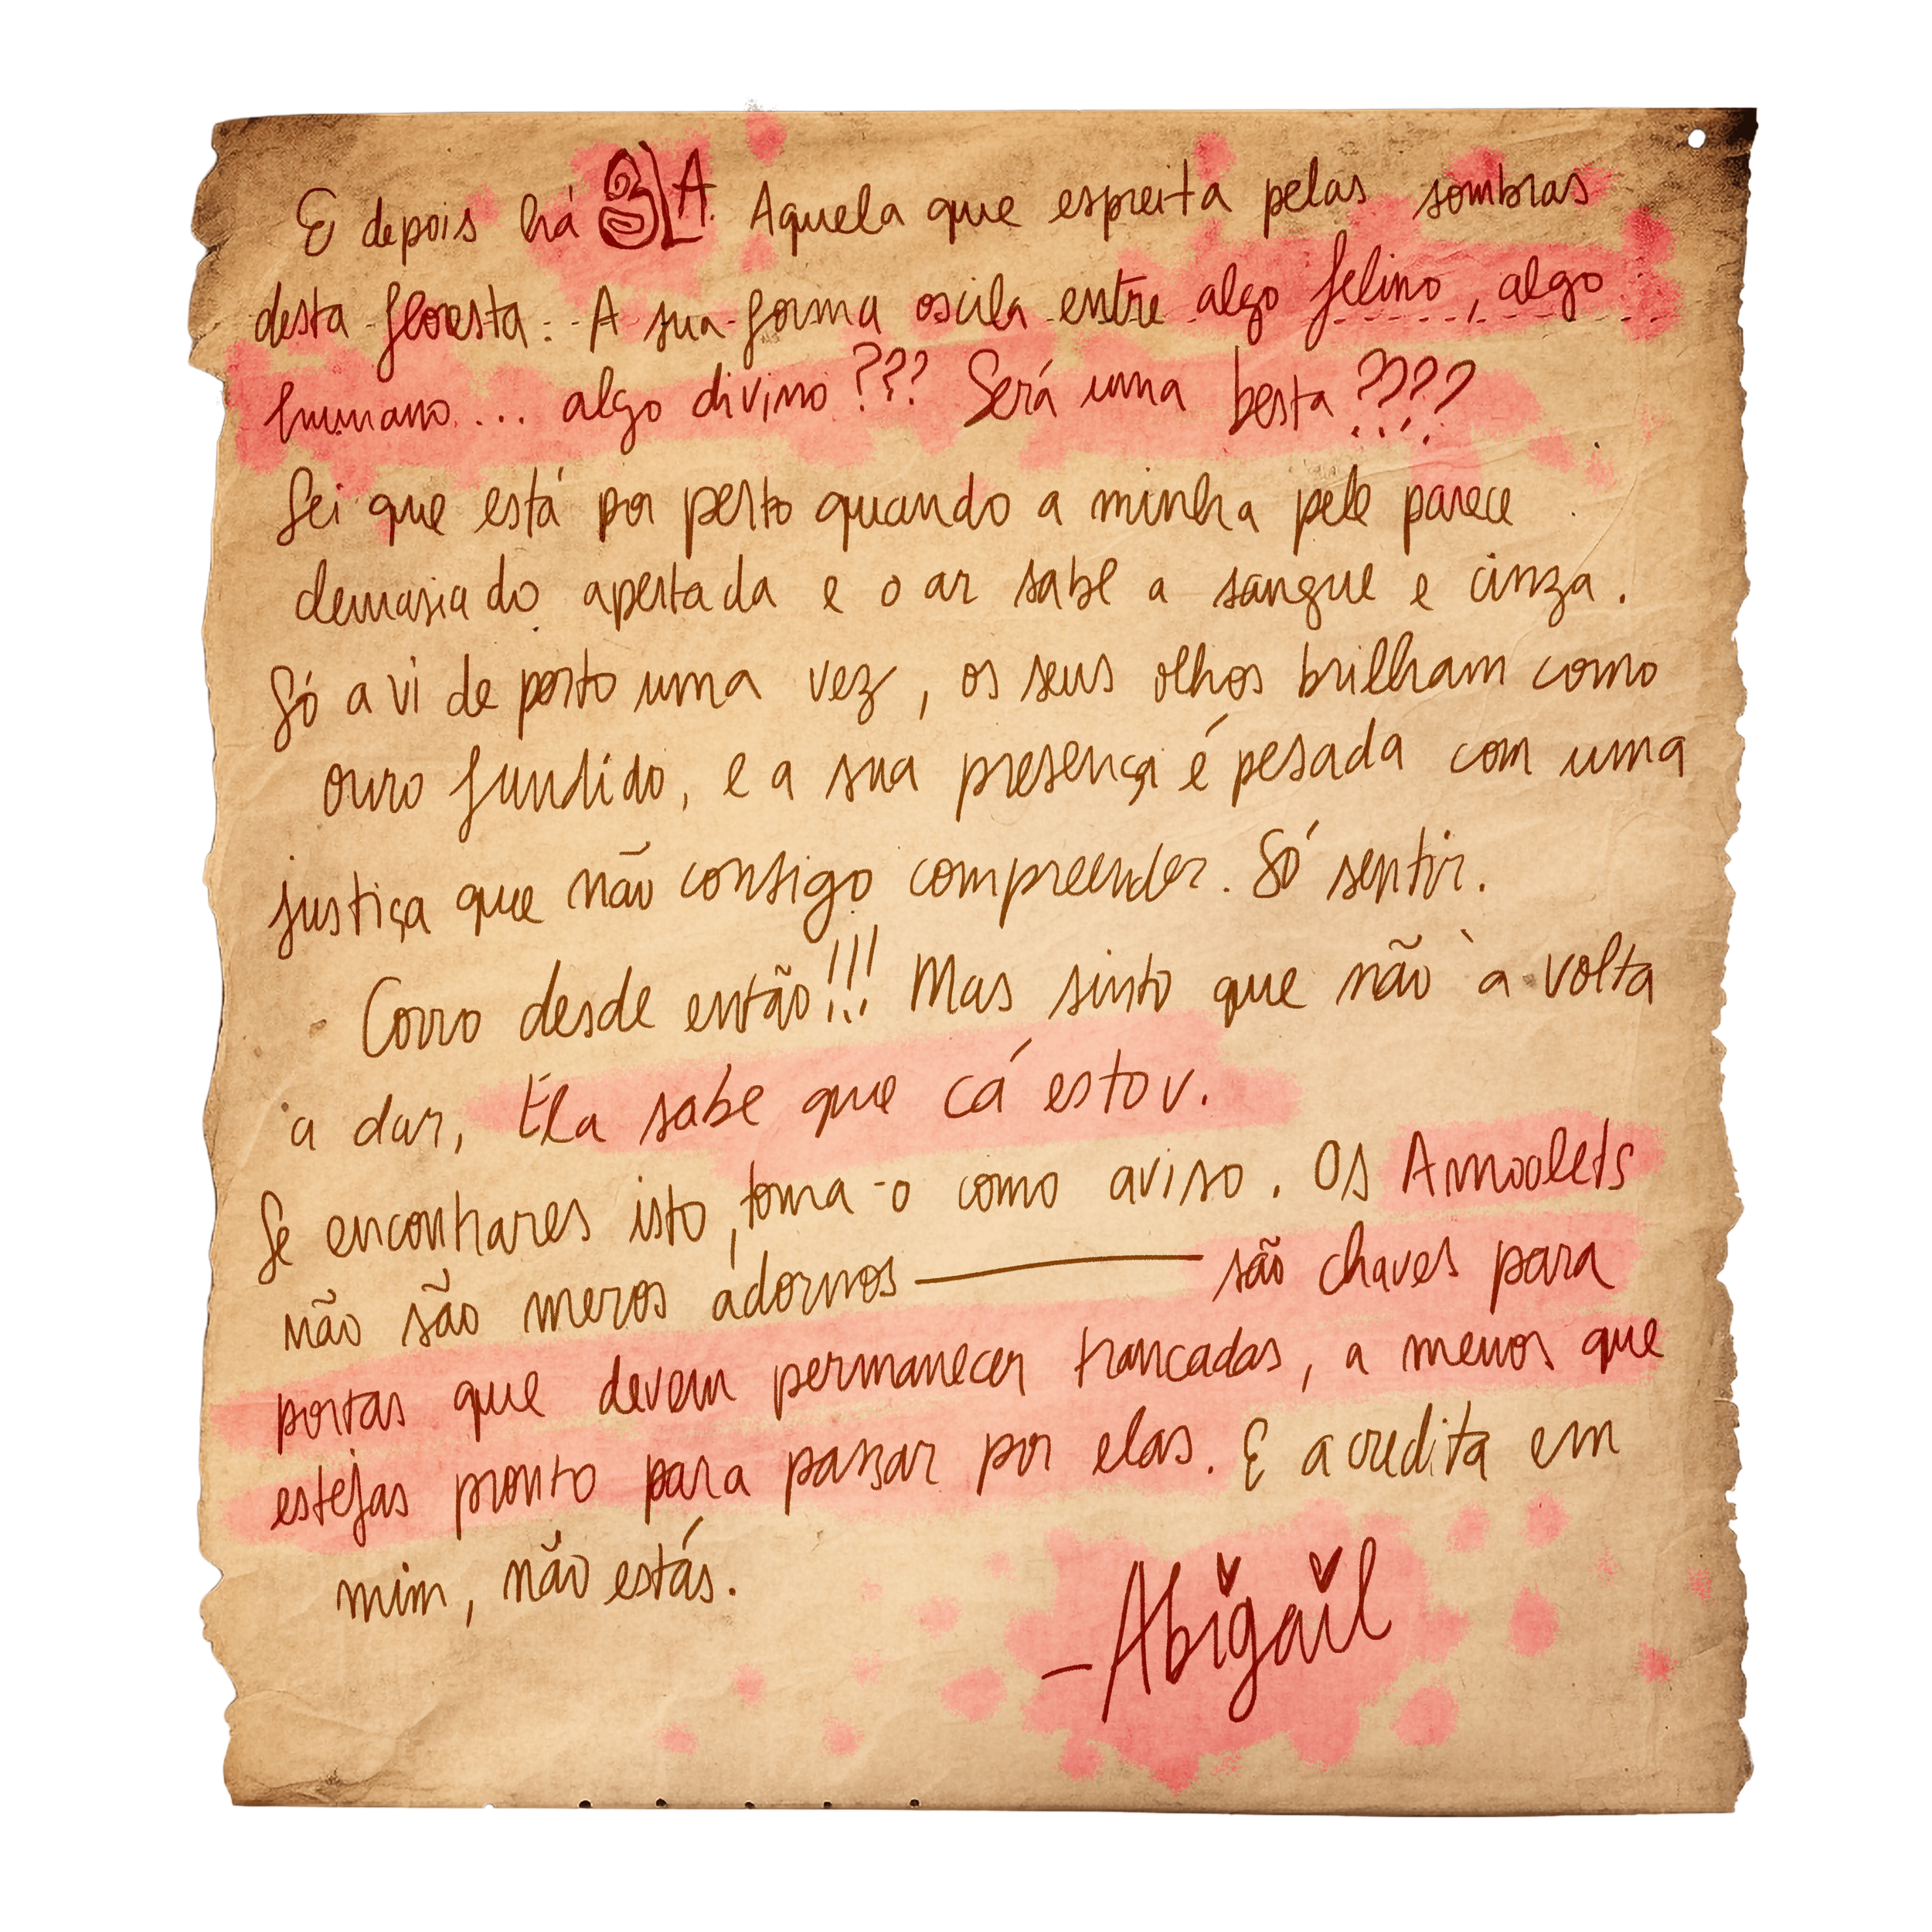 E depois há ELA. Aquela que espreita pelas sombras
desta floresta. A sua forma oscila entre algo felino, algo
humano... algo divino??? Será uma besta????
Sei que está por perto quando a minha pele parece
demasiado apertada e o ar sabe a sangue e cinza.
Só a vi de perto uma vez, os seus olhos brilham como
ouro fundido, e a sua presença é pesada com uma
justiça que não consigo compreender. Só sentir.
Corro desde então!!! Mas sinto que não à volta
a dar, Ela sabe que cá estou.
Se encontrares isto, toma-o como aviso. Os Amoolets
não são meros adornos — são chaves para
portas que devem permanecer trancadas, a menos que
estejas pronto para passar por elas. E acredita em
mim, não estás.
-Abigail